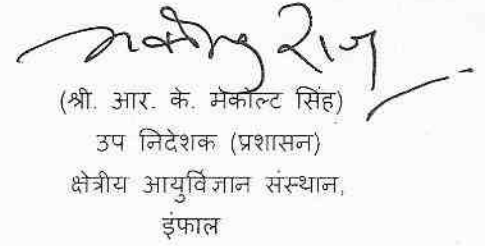 (श्री. आर. के. मेकोल्ट सिंह)
उप निदेशक (प्रशासन)
क्षेत्रीय आयुर्विज्ञान संस्थान,
इंफाल